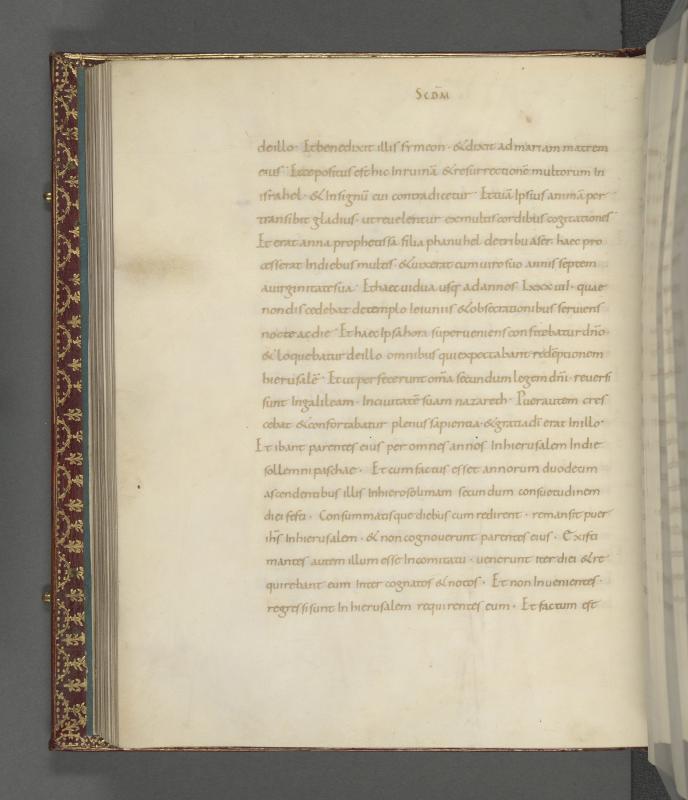 Scdm̄
deillo · Etbenedixit illis symeon · &dixit admariam matrem
eius · Eccepositus est hic Inruinā &resurrectionē multorum In
israhel · & Insignū cui contradicetur · Ettuā Ipsius animā per
transibit gladius · utrevelentur exmultis cordibus cogitationes
Et erat anna prophetissa filia phanuhel detribu aser · haec pro
cesserat Indiebus multis · &uixerat cum uiro suo annis septem
auirginitate sua · Et haec uidua usq; ad annos Lxxxiiii · quae
non discedebat detemplo Ieiuniis &obsecrationibus seruiens
nocte ac die · Et haec Ipsa hora superueniens confitebatur dnō ·
& loquebatur deillo omnibus qui expectabant redēptionem
hierusalē · Et ut perfecerunt omīa secundum legem dnī · reuersi
sunt Ingalileam · Inciuitatē suam nazareth · Puer autem cres
cebat &confortabatur plenus sapientia · &gratia dī erat Inillo ·
Et ibant parentes eius per omnes annos Inhierusalem Indie
sollemni paschae · Et cum factus esset annorum duodecim
ascendentibus illis Inhierosolimam secundum consuetudinem
diei festi · Consummatisque diebus cum redirent · remansit puer
ihs̄ Inhierusalem · & non cognouerunt parentes eius · Existi
mantes autem illum esse Incomitatu · uenerunt iter diei &re
quirebant eum Inter cognatos &notos · Et non Inuenientes ·
regressi sunt In hierusalem requirentes eum · Et factum est